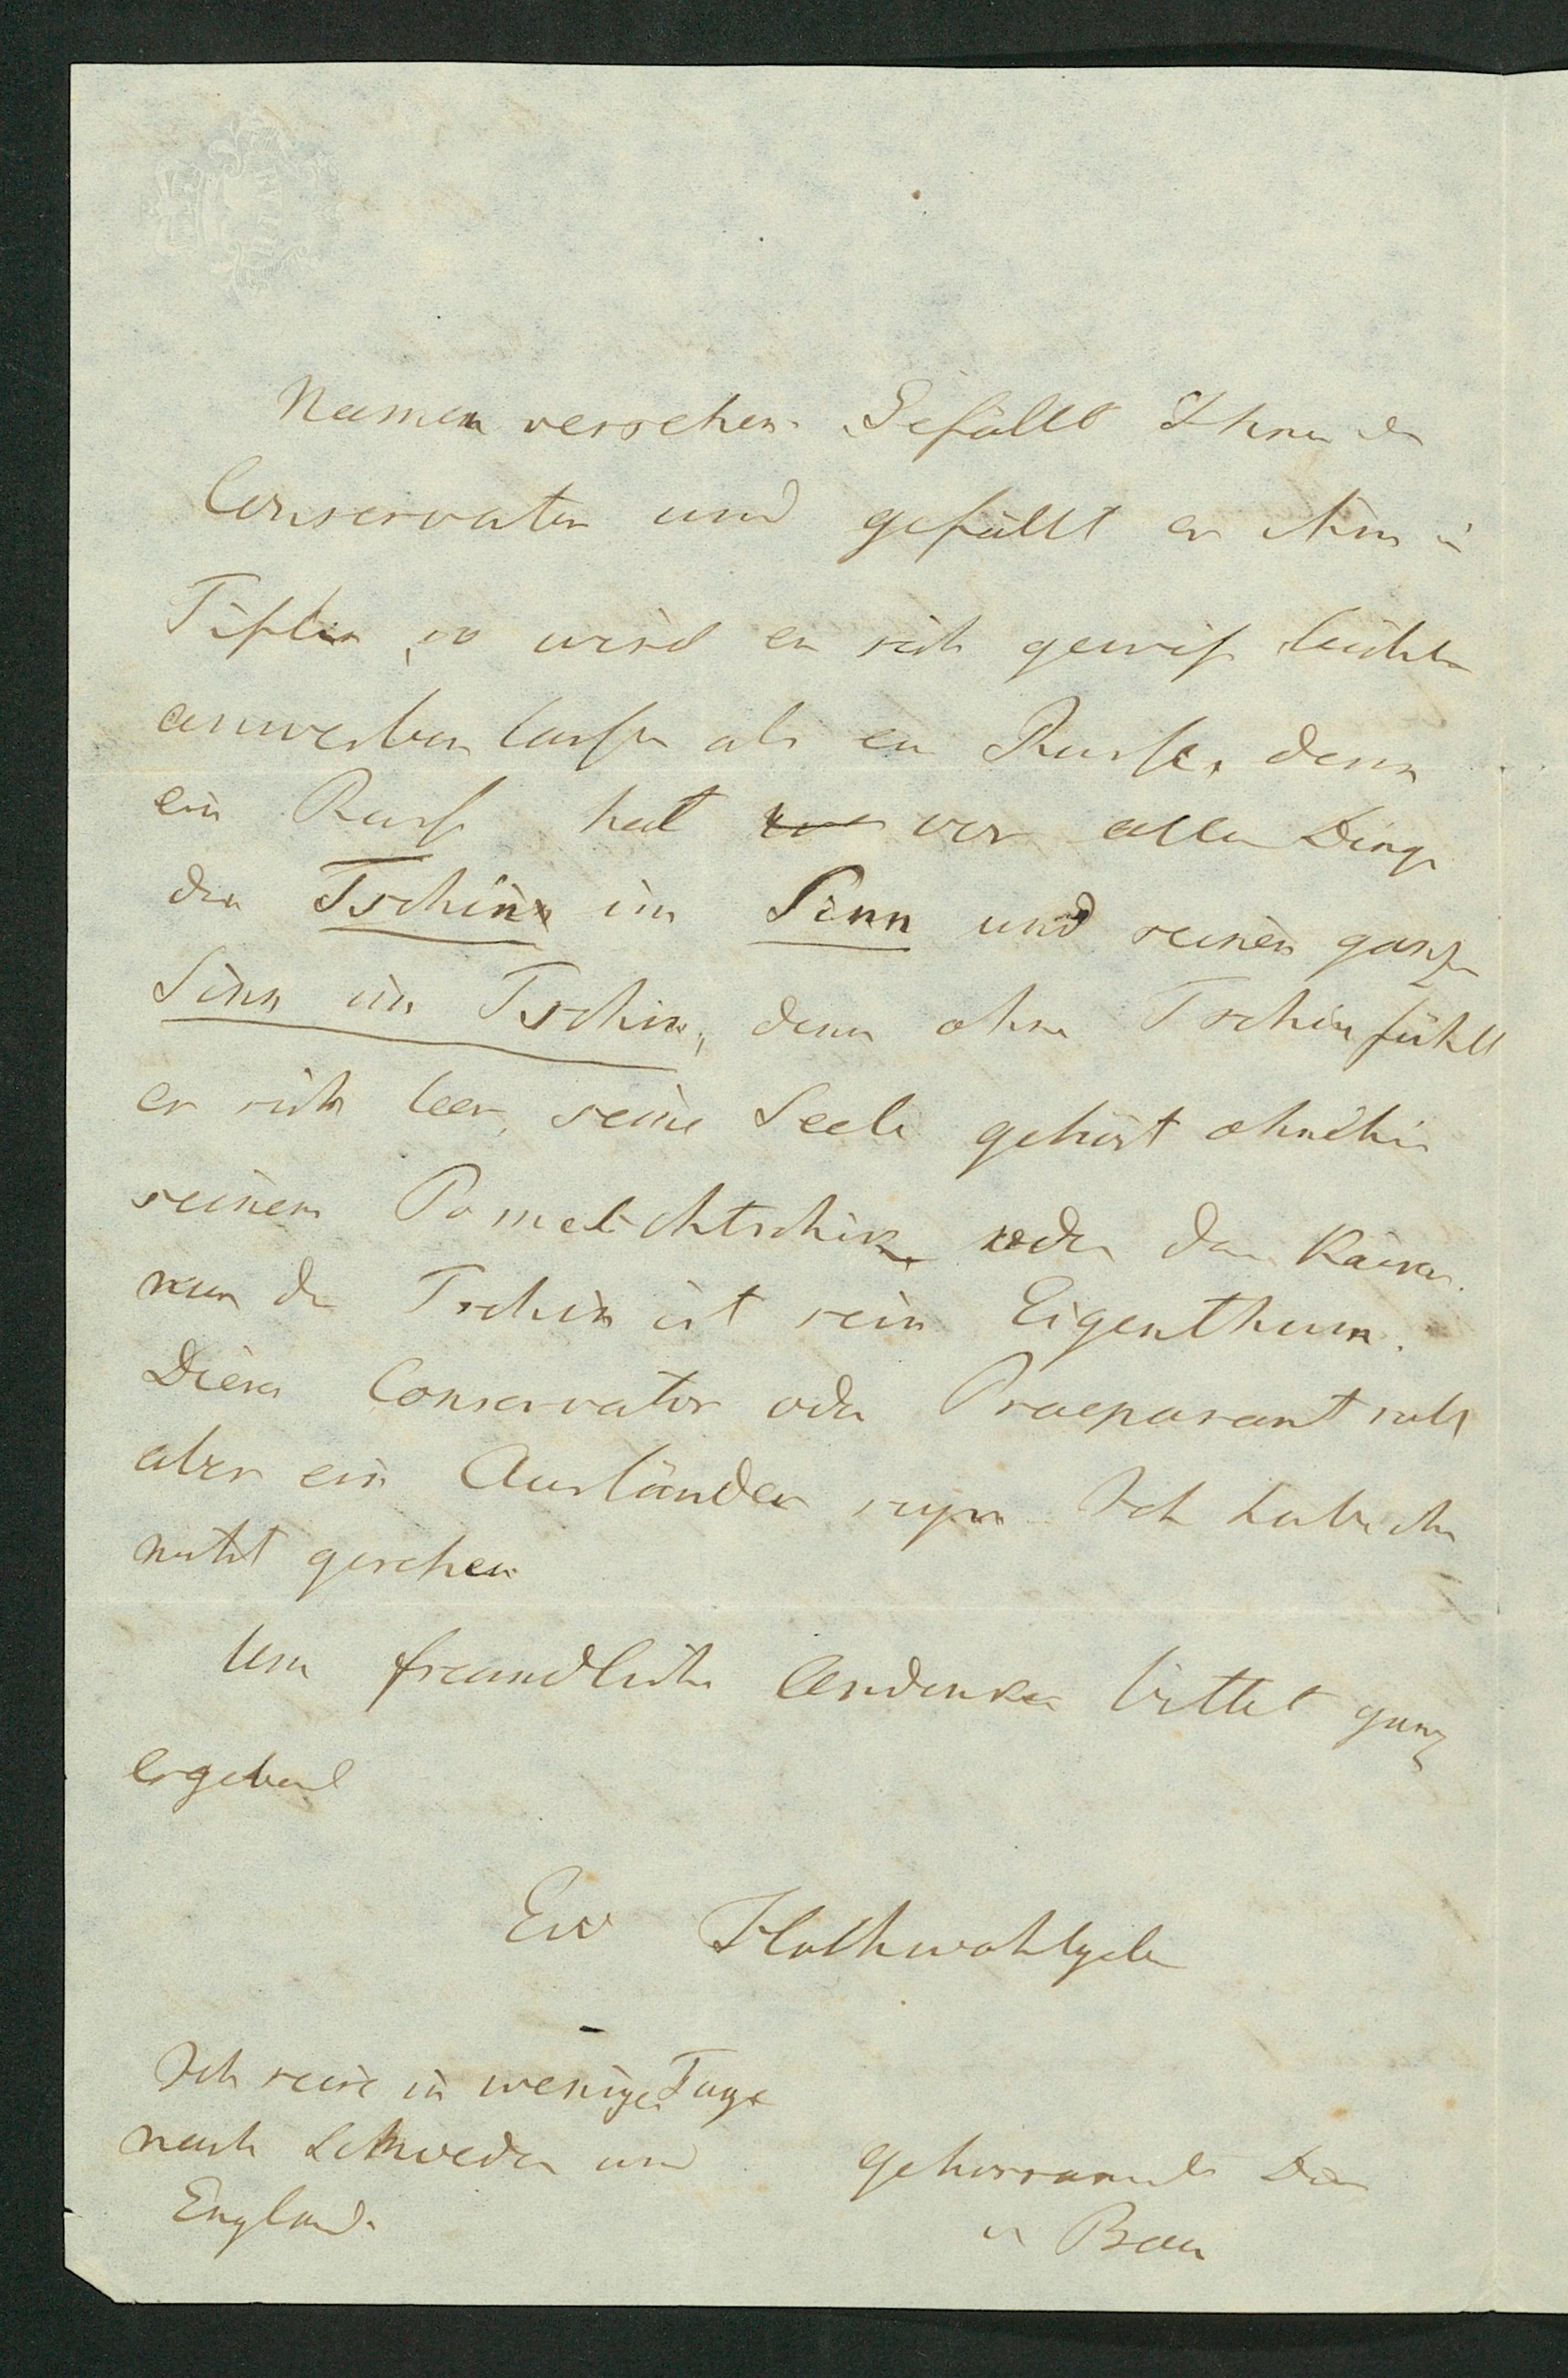 Namen versehen. Gefällt Ihnen der
Conservator und gefällt es ihm in
Tiflis, so wird er sich gewiß leichter
anwerben lassen als ein Russe, denn
ein Russe hat vor allen Dingen
den Tschin im Sinn und seinen ganzen
Sinn im Tschin, denn ohne Tschin fühlt
er sich leer, seine Seele gehört ohnehin
seinem Pomeschtschik oder dem Kaiser.
nur der Tschin ist sein Eigenthum.
Dieser Conservator oder Praeparant soll
aber ein Ausländer seyn. Ich habe ihn
nicht gesehen.
Um freundliches Andenken bittet ganz
ergebenst
Ew Hochwohlgeb
Ich reise in wenigen Tagen
nach Schweden und
England.
gehorsamster Die
v Baer